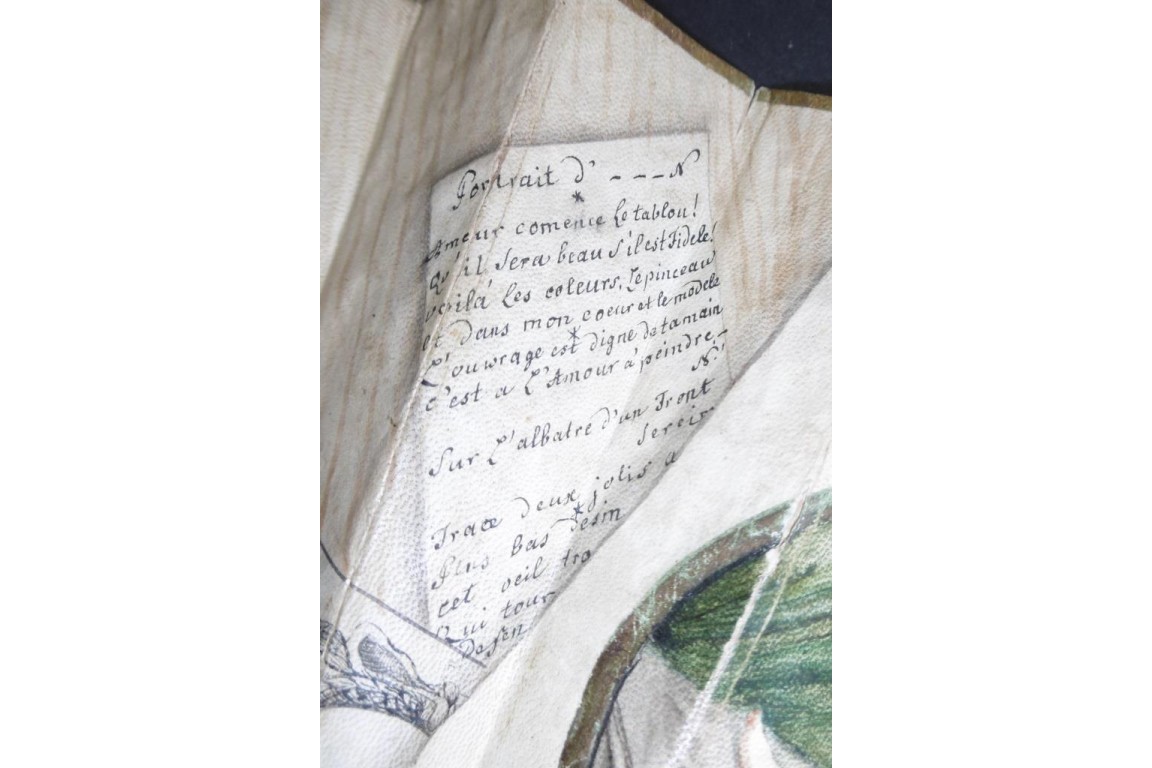 Portrait d' - - - N
*
Amour comence Le tablou!
Qu'il sera beau s'il est Fidele!
voila Les coleurs, Le pinceau
et Dans mon coeur et le modele
*
L'ouwrage est digne de ta main
c'est a L'Amour á peindre -
N!
Sur L'albatre d'un Front
serein
Trace deux jolis a
*
Plus bas desin
cet oeil tro
Qui tour